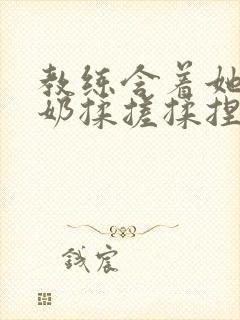 教练含着她
奶揉搓揉捏
钱宸